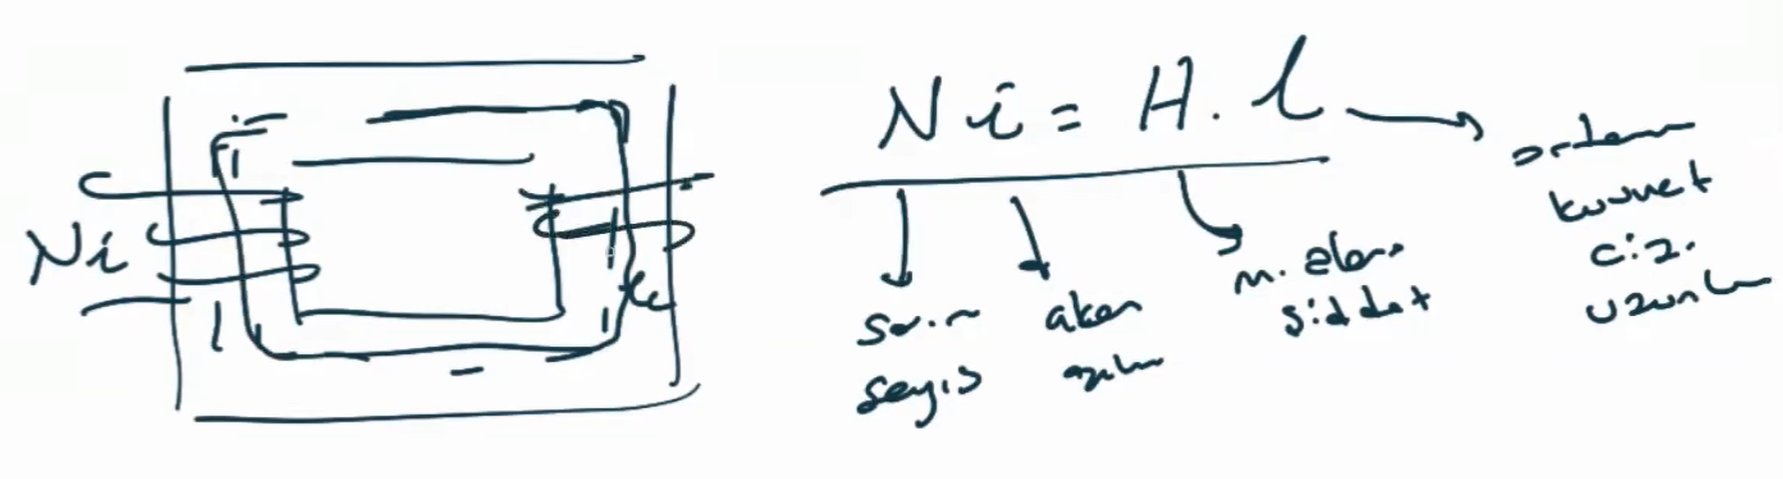 Ni
Ni = H. l
sarım
sayıs
akan
akım
m. alan
şiddet
ortam
kuvvet
çiz.
uzunlu